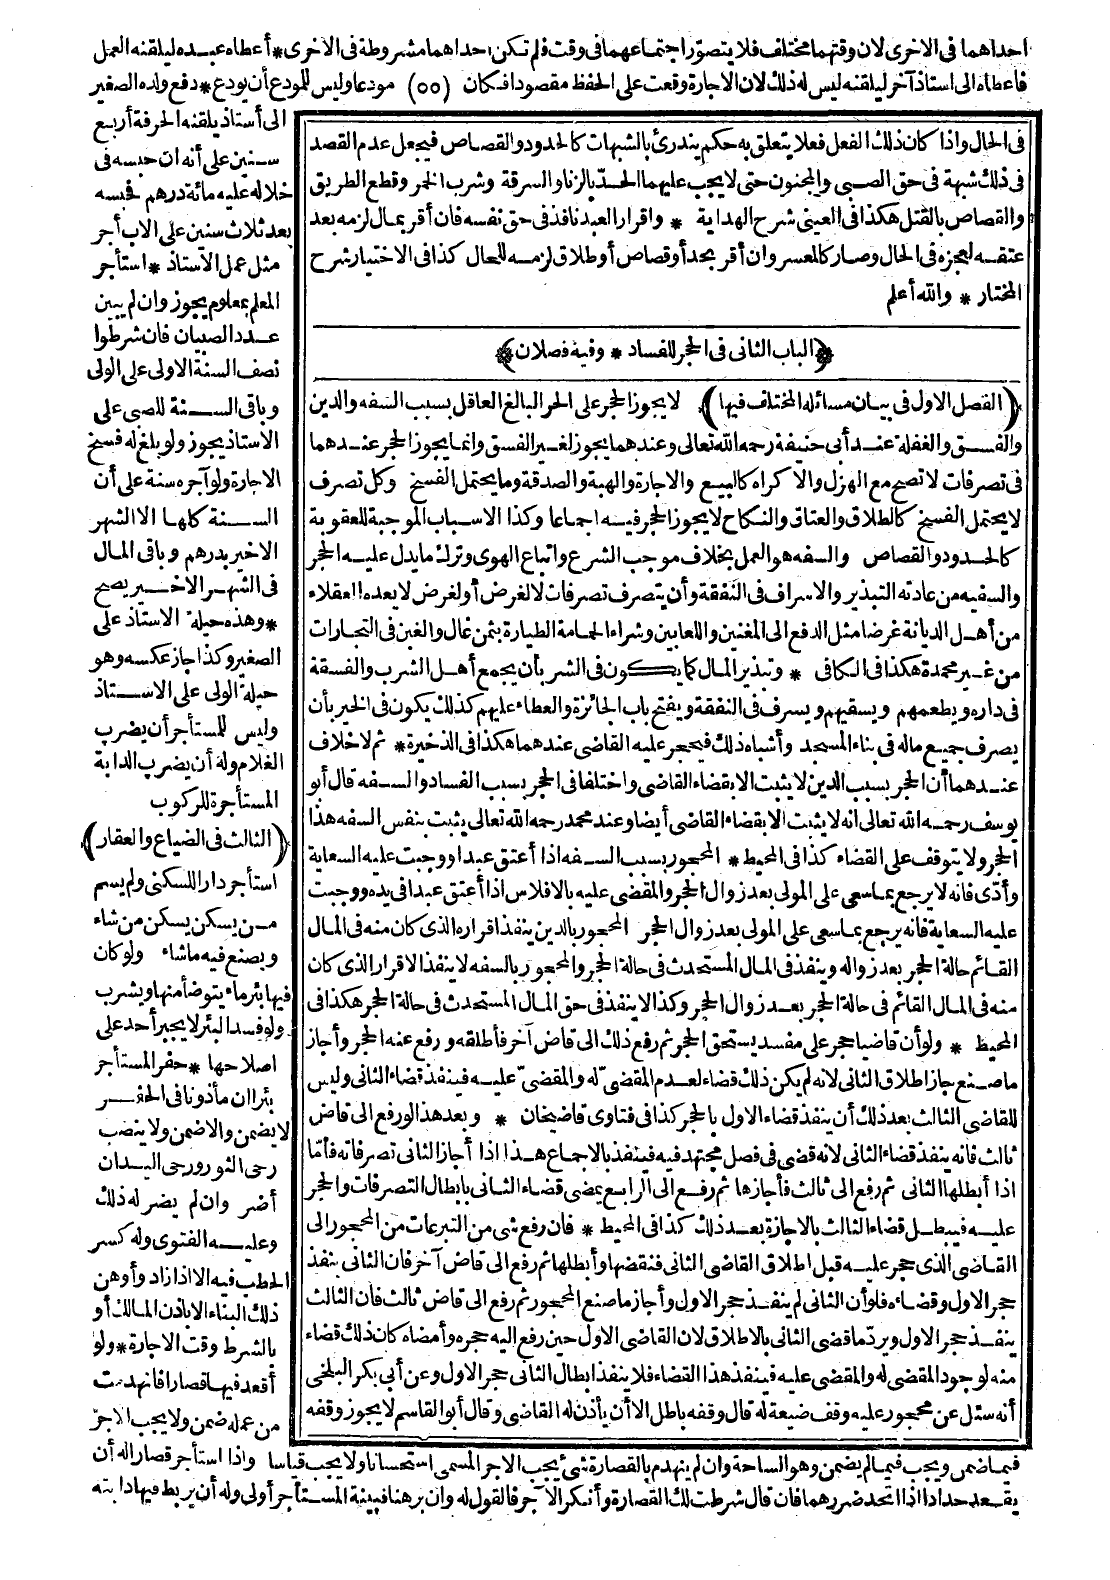 احداهما فى الاخرى لان وقتهما مختلف فلا يتصوّر اجتماعهما فى وقت فلم تكن احداهما مشروطة فى الاخرى * أعطاه عبده ليلقنه العمل
فأعطاه الى استاذ آخر ليلقنه ليس له ذلك لان الاجارة وقعت على الحفظ مقصودا فكان (٥٥) مودعا وليس للمودع أن يودع * دفع ولده الصغير
فى الحال واذا كان ذلك الفعل فعلا يتعلق به حكم يندرئ بالشبهات كالحدود والقصاص فيجعل عدم القصد
فى ذلك شبهة فى حق الصبى والمجنون حتى لا يجب عليهما الحدّ بالزنا والسرقة وشرب الخمر وقطع الطريق
والقصاص بالقتل هكذا فى العينى شرح الهداية * واقرار العبد نافذ فى حق نفسه فان أقر بمال لزمه بعد
عتقه لعجزه فى الحال وصار كالمعسر وان أقر بحد أو قصاص أو طلاق لزمه للحال كذا فى الاختيار شرح
المختار * والله أعلم
﴿الباب الثانى فى الحجر للفساد * وفيه فصلان﴾
(الفصل الاول فى بيان مسائله المختلف فيها) لا يجوز الحجر على الحر البالغ العاقل بسبب السفه والدين
والفسق والغفلة عند أبى حنيفة رحمه الله تعالى وعندهما يجوز لغير الفسق وانما يجوز الحجر عندهما
فى تصرفات لا تصح مع الهزل والاكراه كالبيع والاجارة والهبة والصدقة وما يحتمل الفسخ وكل تصرف
لا يحتمل الفسخ كالطلاق والعتاق والنكاح لا يجوز الحجر فيه اجماعا وكذا الاسباب الموجبة للعقوبة
كالحدود والقصاص والسفه هو العمل بخلاف موجب الشرع واتباع الهوى وترك ما يدل عليه الحجر
والسفيه من عادته التبذير والاسراف فى النفقة وأن يتصرف تصرفات لا لغرض أو لغرض لا يعده العقلاء
من أهل الديانة غرضا مثل الدفع الى المغنين واللعابين وشراء الحمامة الطيارة بثمن غال والغبن فى التجارات
من غير محمدة هكذا فى الكافى * وتبذير المال كما يكون فى الشر بأن يجمع أهل الشرب والفسقة
فى داره ويطعمهم ويسقيهم ويسرف فى النفقة ويفتح باب الجائزة والعطاء عليهم كذلك يكون فى الخير بأن
يصرف جميع ماله فى بناء المسجد وأشباه ذلك فيحجر عليه القاضى عندهما هكذا فى الذخيرة * ثم لا خلاف
عندهما أن الحجر بسبب الدين لا يثبت الا بقضاء القاضى واختلفا فى الحجر بسبب الفساد والسفه قال أبو
يوسف رحمه الله تعالى أنه لا يثبت الا بقضاء القاضى أيضا وعند محمد رحمه الله تعالى يثبت بنفس السفه هذا
الحجر ولا يتوقف على القضاء كذا فى المحيط * المحجور بسبب السفه اذا أعتق عبدا ووجبت عليه السعاية
وأدّى فانه لا يرجع بما سعى على المولى بعد زوال الحجر والمقضى عليه بالافلاس اذا أعتق عبدا فى يده ووجبت
عليه السعاية فانه يرجع بما سعى على المولى بعد زوال الحجر المحجور بالدين ينفذ اقراره الذى كان منه فى المال
القائم حالة الحجر بعد زواله وينفذ فى المال المستحدث فى حالة الحجر والمحجور بالسفه لا ينفذ الاقرار الذى كان
منه فى المال القائم فى حالة الحجر بعد زوال الحجر وكذا لا ينفذ فى حق المال المستحدث فى حالة الحجر هكذا فى
المحيط * ولو أن قاضيا حجر على مفسد يستحق الحجر ثم رفع ذلك الى قاض آخر فأطلقه ورفع عنه الحجر وأجاز
ما صنع جاز اطلاق الثانى لانه لم يكن ذلك قضاء لعدم المقضىّ له والمقضىّ عليه فينفذ قضاء الثانى وليس
للقاضى الثالث بعد ذلك أن ينفذ قضاء الاول بالحجر كذا فى فتاوى قاضيخان * وبعد هذا لو رفع الى قاض
ثالث فانه ينفذ قضاء الثانى لانه قضى فى فصل مجتهد فيه فينفذ بالاجماع هذا اذا أجاز الثانى تصرفاته فأمّا
اذا أبطلها الثانى ثم رفع الى ثالث فأجازها ثم رفع الى الرابع يمضى قضاء الثانى بابطال التصرفات والحجر
عليه فيبطل قضاء الثالث بالاجازة بعد ذلك كذا فى المحيط * فان رفع شىء من التبرعات من المحجور الى
القاضى الذى حجر عليه قبل اطلاق القاضى الثانى فنقضها وأبطلها ثم رفع الى قاض آخر فان الثانى ينفذ
حجر الاول وقضاءه فلو أن الثانى لم ينفذ حجر الاول وأجاز ما صنع المحجور ثم رفع الى قاض ثالث فان الثالث
ينفذ حجر الاول ويردّ ما قضى الثانى بالاطلاق لان القاضى الاول حين رفع اليه حجره وأمضاه كان ذلك قضاء
منه لوجود المقضى له والمقضى عليه فينفذ هذا القضاء فلا ينفذ ابطال الثانى حجر الاول وعن أبى بكر البلخى
أنه سئل عن محجور عليه وقف ضيعة له قال وقفه باطل الا أن يأذن له القاضى وقال أبو القاسم لا يجوز وقفه
الى أستاذ يلقنه الحرفة أربع
سنين على أنه ان حبسه فى
خلاله عليه مائة درهم فحبسه
بعد ثلاث سنين على الاب أجر
مثل عمل الاستاذ * استأجر
المعلم بمعلوم يجوز وان لم يبين
عدد الصبيان فان شرطوا
نصف السنة الاولى على الولى
وباقى السنة للصبى على
الاستاذ يجوز ولو بلغ له فسخ
الاجارة ولو آجره سنة على أن
السنة كلها الا الشهر
الاخير بدرهم وباقى المال
فى الشهر الاخير يصح
* وهذه حيلة الاستاذ على
الصغير وكذا جاز عكسه وهو
حيلة الولى على الاستاذ
وليس للمستأجر أن يضرب
الغلام وله أن يضرب الدابة
المستأجرة للركوب
(الثالث فى الضياع والعقار)
استأجر دارا للسكنى ولم يسم
من يسكن يسكن من شاء
ويصنع فيه ما شاء ولو كان
فيها بئر ماء يتوضأ منها ويشرب
ولو فسد البئر لا يجبر أحد على
اصلاحها * حفر المستأجر
بئرا ان مأذونا فى الحفر
لا يضمن والا ضمن ولا ينصب
رحى الثور ورحى اليد ان
أضر وان لم يضر له ذلك
وعليه الفتوى وله كسر
الحطب فيه الا اذا زاد وأوهن
ذلك البناء الا باذن المالك أو
بالشرط وقت الاجارة * ولو
أقعد فيها قصارا فانهدمت
من عمله ضمن ولا يجب الاجر
فيما ضمن ويجب فيما لم يضمن وهو الساحة وان لم ينهدم بالقصارة شىء يجب الاجر المسمى استحسانا ولا يجب قياسا واذا استأجر قصارا له أن
يقعد حدادا اذا اتحد ضررهما فان قال شرطت لك القصارة وأنكر الآخر فالقول له وان برهنا فبينة المستأجر أولى وله أن يربط فيها دابته